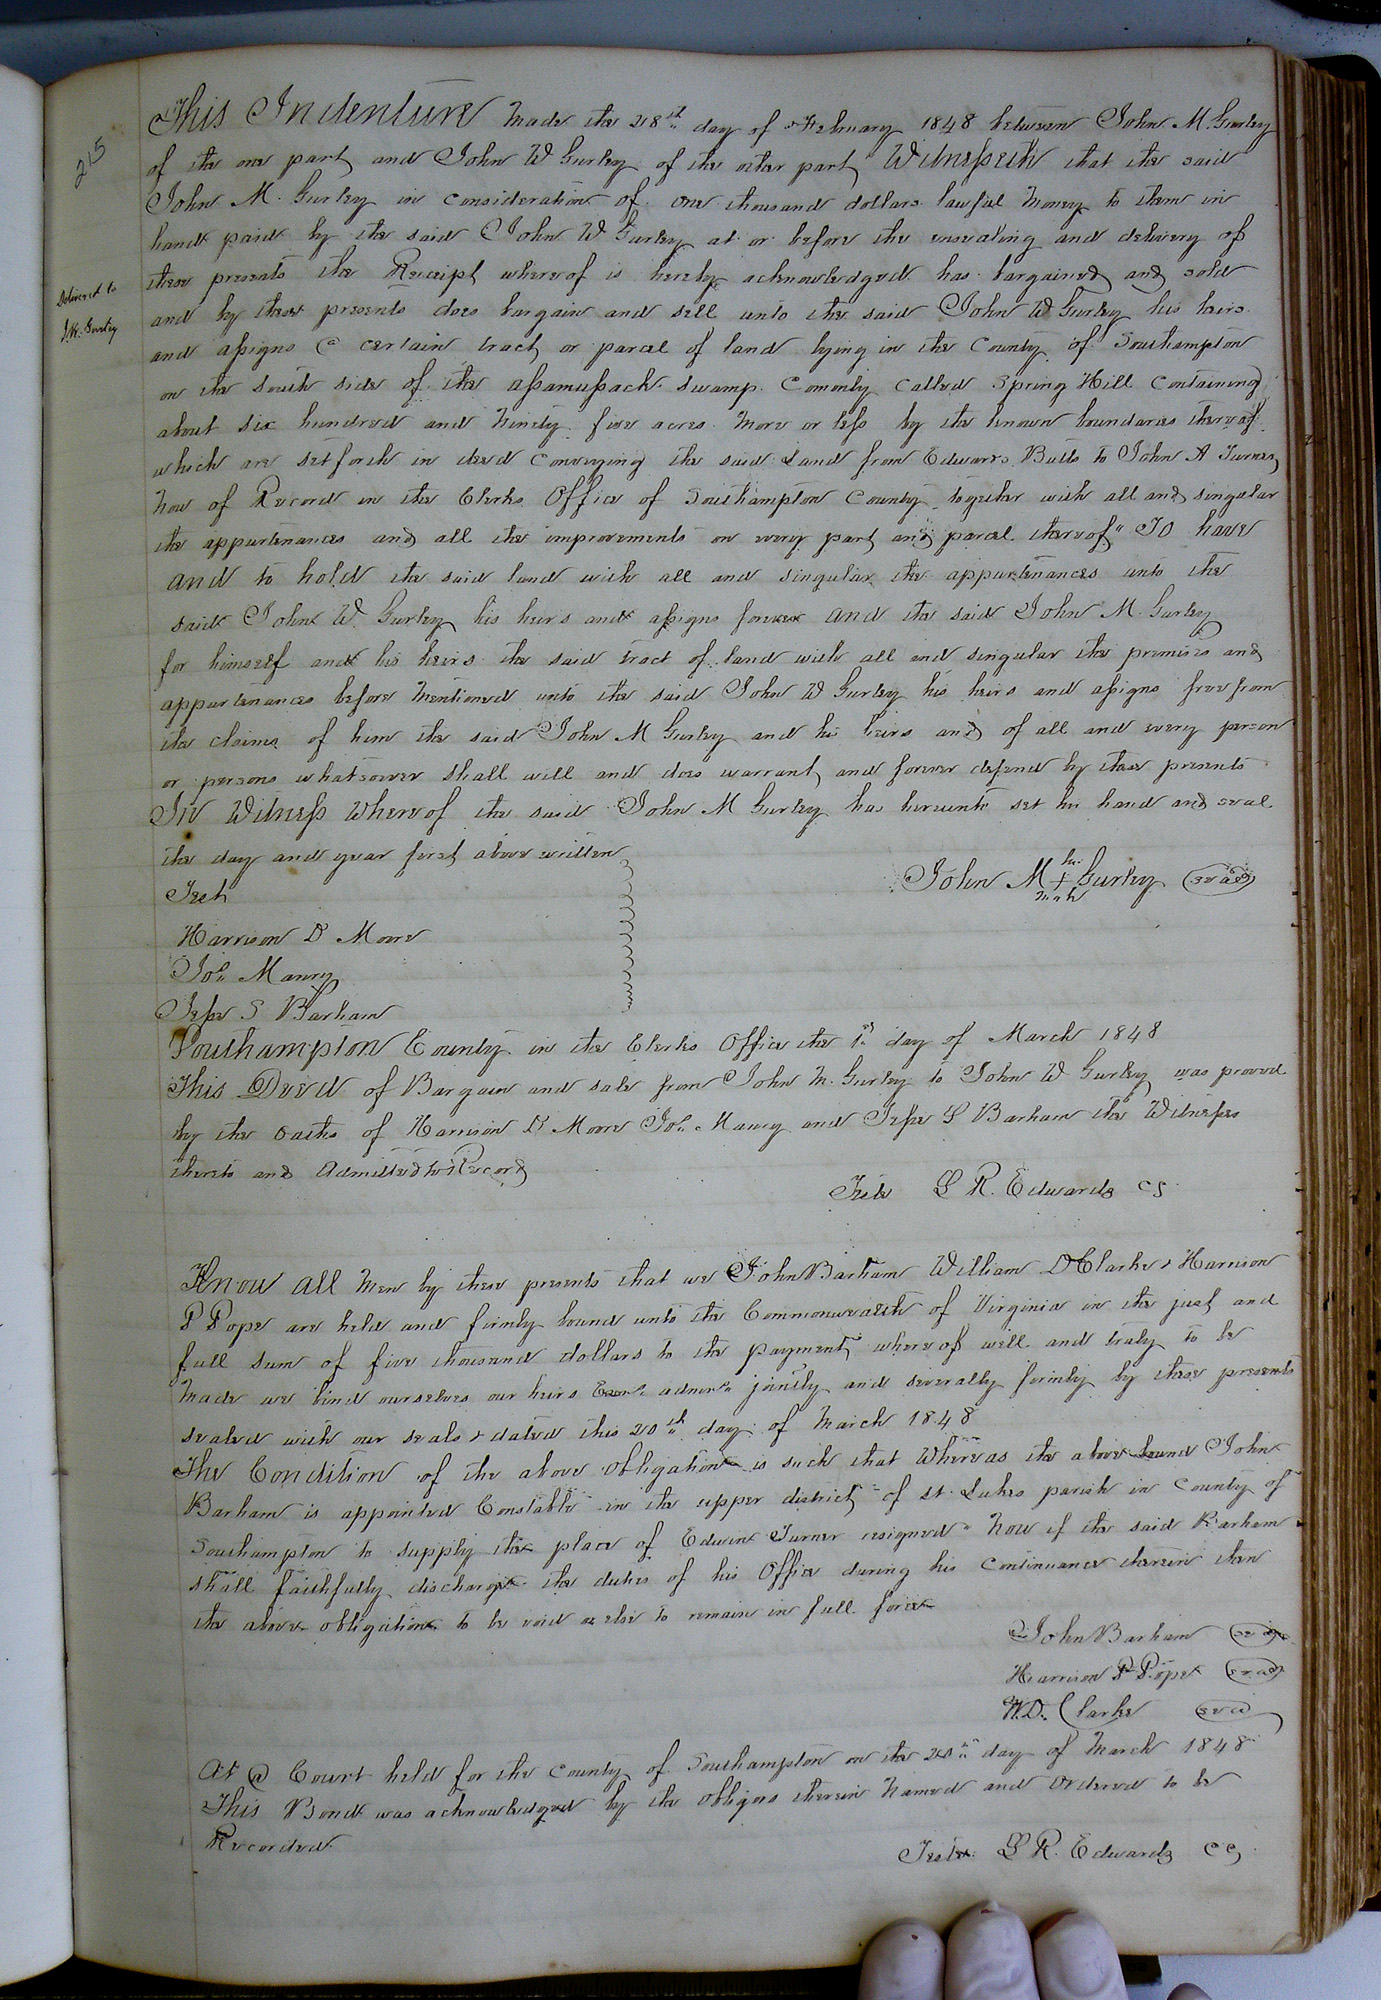 215
Delivered to
J. W. Gurley
This Indenture Made the 28th day of February 1848 between John M. Gurley
of the one part and John W Gurley of the other part Witnesseth that the said
John M. Gurley in consideration of one thousand dollars lawful money to them in
hand paid by the said John W Gurley at or before the ensealing and delivery of
these presents the Receipt whereof is hereby acknowledged has bargained and sold
and by these presents does bargain and sell unto the said John W Gurley his heirs
and assigns a certain tract or parcel of land lying in the County of Southampton
on the south side of the assamussack swamp Comonly called Spring Hill Containing
about six hundred and Ninety five acres More or less by the known boundaries thereof
which are set forth in deed Conveying the said Land from Edwards Butts to John A Turner
Now of Record in the Clerks Office of Southampton County together with all and singular
the appurtenances and all the improvements on every part and parcel thereof" To have
and to hold the said land with all and singular the appurtenances unto the
said John W. Gurley his heirs and assigns forever and the said John M. Gurley
for himself and his heirs the said tract of land with all and singular the premises and
appurtenances before Mentioned unto the said John W Gurley his heirs and assigns free from
the claims of him the said John M Gurley and his heirs and of all and every person
or persons whatsoever shall will and does warrant and forever defend by these presents
In Witness whereof the said John M Gurley has hereunto set his hand and seal
the day and year first above written
his
Test John M + Gurley seal
mark
Harrison D Moore
Jos. Maury
Jesse S Barham
Southampton County in the Clerks Office the 1st day of March 1848
This Deed of Bargain and sale from John M. Gurley to John W Gurley was proved
by the oaths of Harrison D Moore Jos. Maury and Jesse S Barham the Witnesses
thereto and Admitted to Record
Teste L R. Edwards CS
Know all Men by these presents that we John Barham William D Clarke & Harrison
P Pope are held and firmly bound unto the Commonwealth of Virginia in the just and
full sum of five thousand dollars to the payment whereof well and truly to be
Made we bind ourselves our heirs Exors admors jointly and severally firmly by these presents
sealed with our seals & dated this 20th day of March 1848
The Condition of the above obligation is such that Whereas the above bound John
Barham is appointed Constable in the upper district of St. Lukes parish in County of
Southampton to supply the place of Edwin Turner resigned" Now if the said Barham
shall faithfully discharge the duties of his Office during his Continuance therein then
the above obligation to be void or else to remain in full force
John Barham seal
Harrison P Pope seal
W. D. Clarke seal
At a Court held for the County of Southampton on the 20th day of March 1848
This Bond was acknowledged by the obligors therein Named and Ordered to be
Recorded
Teste L R. Edwards CC